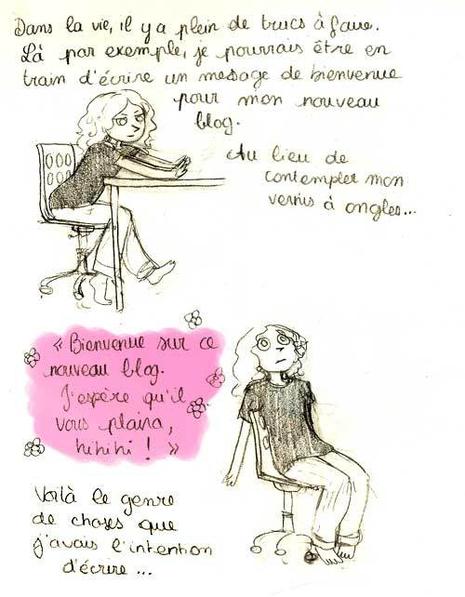 Dans la vie, il y a plein de trucs à faire.
Là par exemple, je pourrais être en
train d'écrire un message de bienvenue
pour mon nouveau
blog.
Au lieu de
contempler mon
vernis à ongles...
« Bienvenue sur ce
nouveau blog.
J'espère qu'il
vous plaira,
hihihi ! »
Voilà le genre
de choses que
j'avais l'intention
d'écrire ...